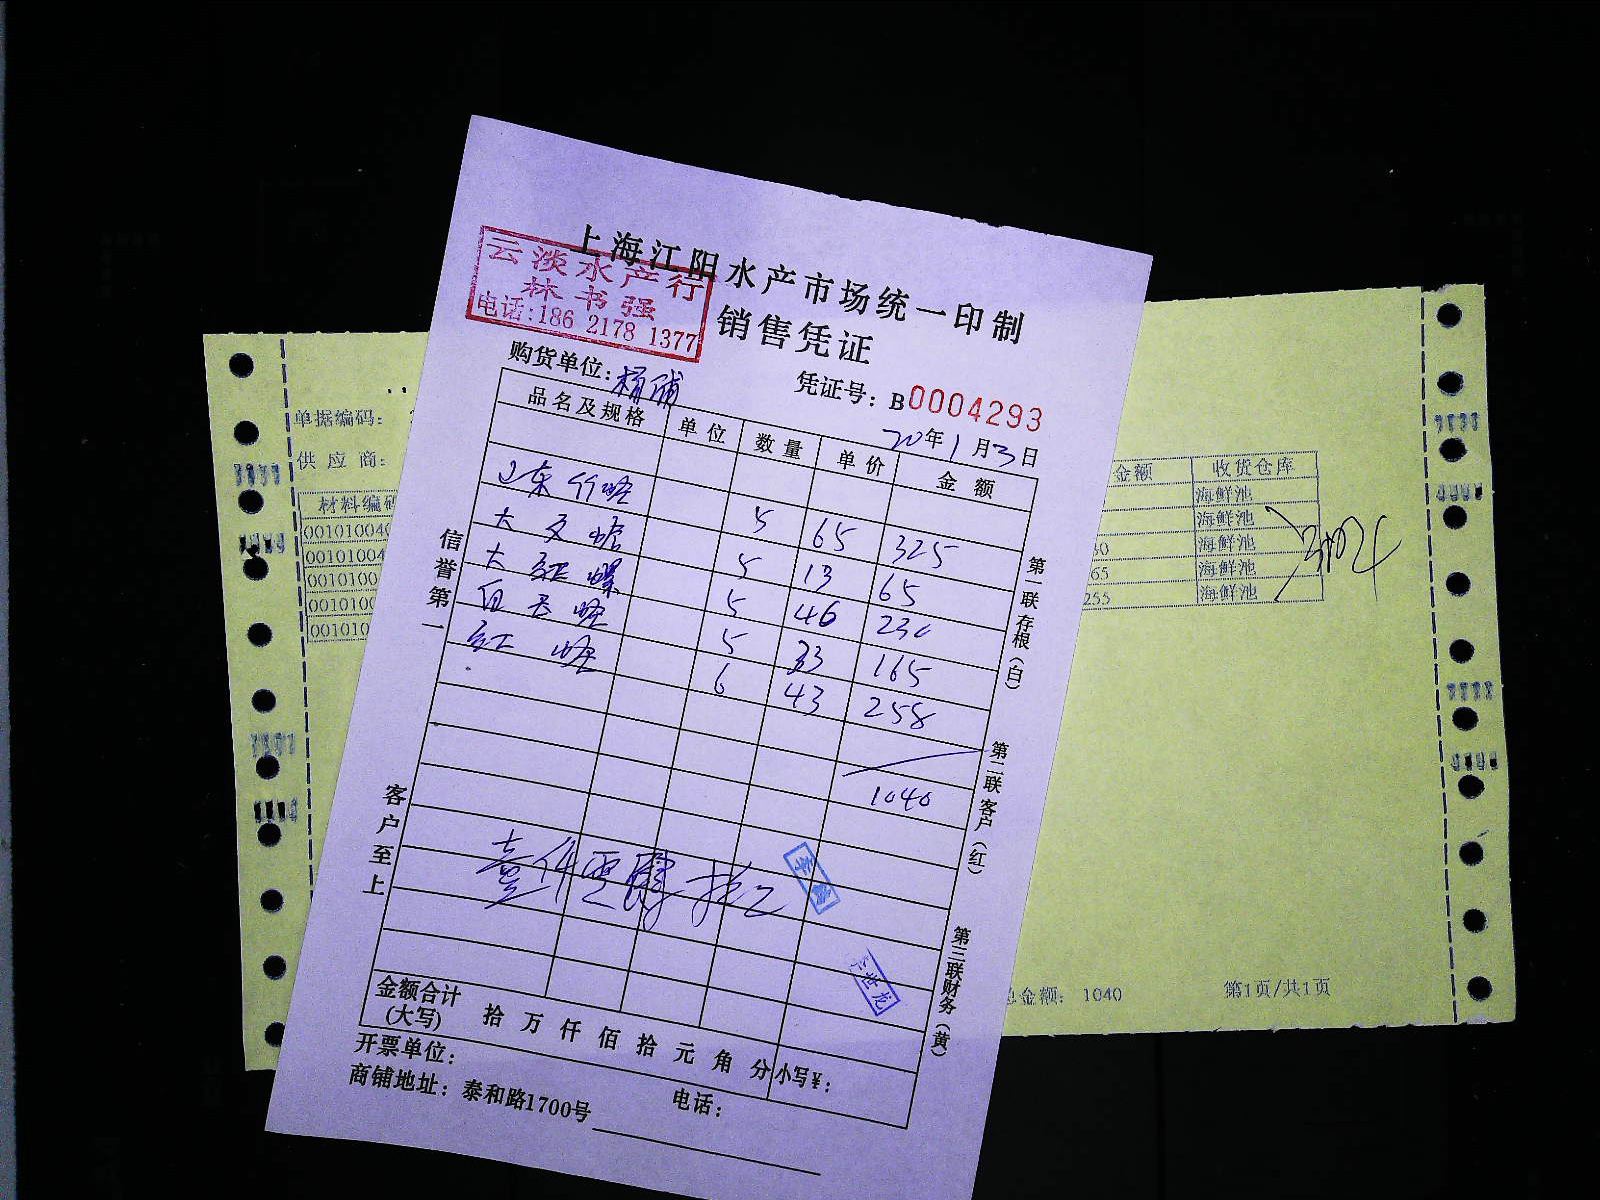 上海江阳水产市场统一印制
销售凭证
云淡水产行
林书强
电话:186 2178 1377
购货单位:杨浦
凭证号: B0004293
20年1月3日
品名及规格 单位 数量 单价 金额
5 65 325
大 5 13 65
大红螺 5 46 230
5 33 165
红 6 43 258
1040
壹仟零肆拾元
李世龙
金额合计
(大写) 拾万仟佰拾元角分 小写¥:
开票单位:
商铺地址: 泰和路1700号 电话:
信誉第一
客户至上
第一联存根(白)
第二联客户(红)
第三联财务(黄)
单据编码:
供应商:
材料编码
00101004
00101004
0010100
0010100
001010
金额 收货仓库
海鲜池
海鲜池
海鲜池
65 海鲜池
255 海鲜池
总金额: 1040 第1页/共1页